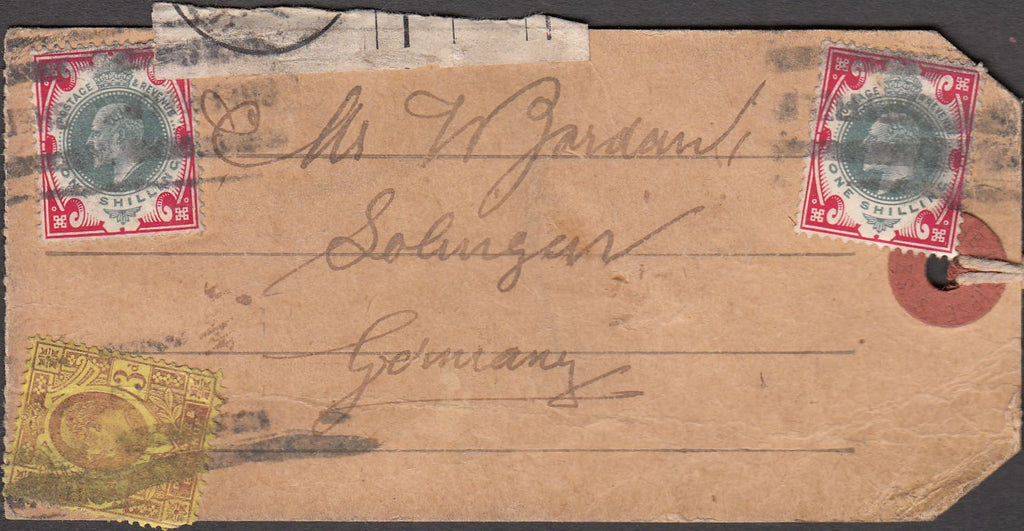 Mr W Jordan
Solingen
Germany
POSTAGE & REVENUE
ONE SHILLING
POSTAGE & REVENUE
ONE SHILLING
3D